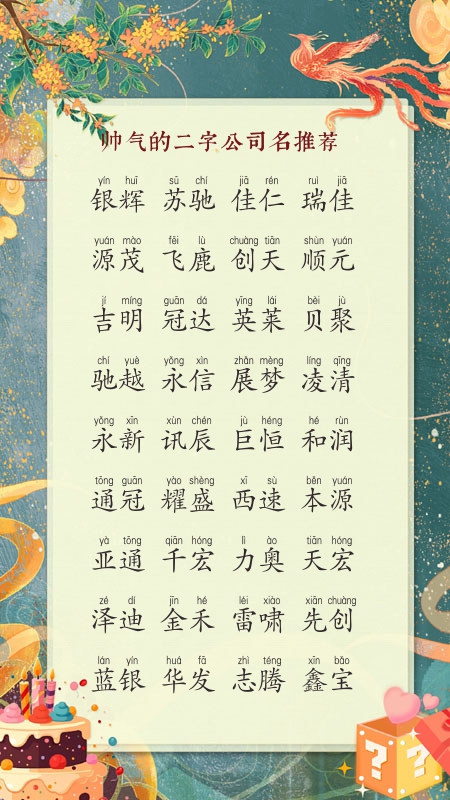 帅气的二字公司名推荐
yín huī sū chí jiā rén ruì jiā
银辉 苏驰 佳仁 瑞佳
yuán mào fēi lù chuàng tiān shùn yuán
源茂 飞鹿 创天 顺元
jí míng guān dá yīng lái bèi jù
吉明 冠达 英莱 贝聚
chí yuè yǒng xìn zhǎn mèng líng qīng
驰越 永信 展梦 凌清
yǒng xīn xùn chén jù héng hé rùn
永新 讯辰 巨恒 和润
tōng guān yào shèng xī sù běn yuán
通冠 耀盛 西速 本源
yà tōng qiān hóng lì ào tiān hóng
亚通 千宏 力奥 天宏
zé dí jīn hé léi xiào xiān chuàng
泽迪 金禾 雷啸 先创
lán yín huá fā zhì téng xīn bǎo
蓝银 华发 志腾 鑫宝
? ?